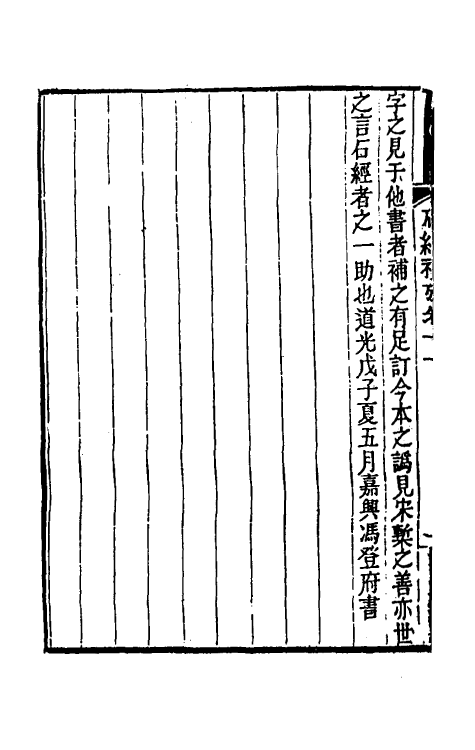 字之見于他書者補之有足訂今本之譌見宋槧之善亦世
之言石經者之一助也道光戊子夏五月嘉興馮登府書